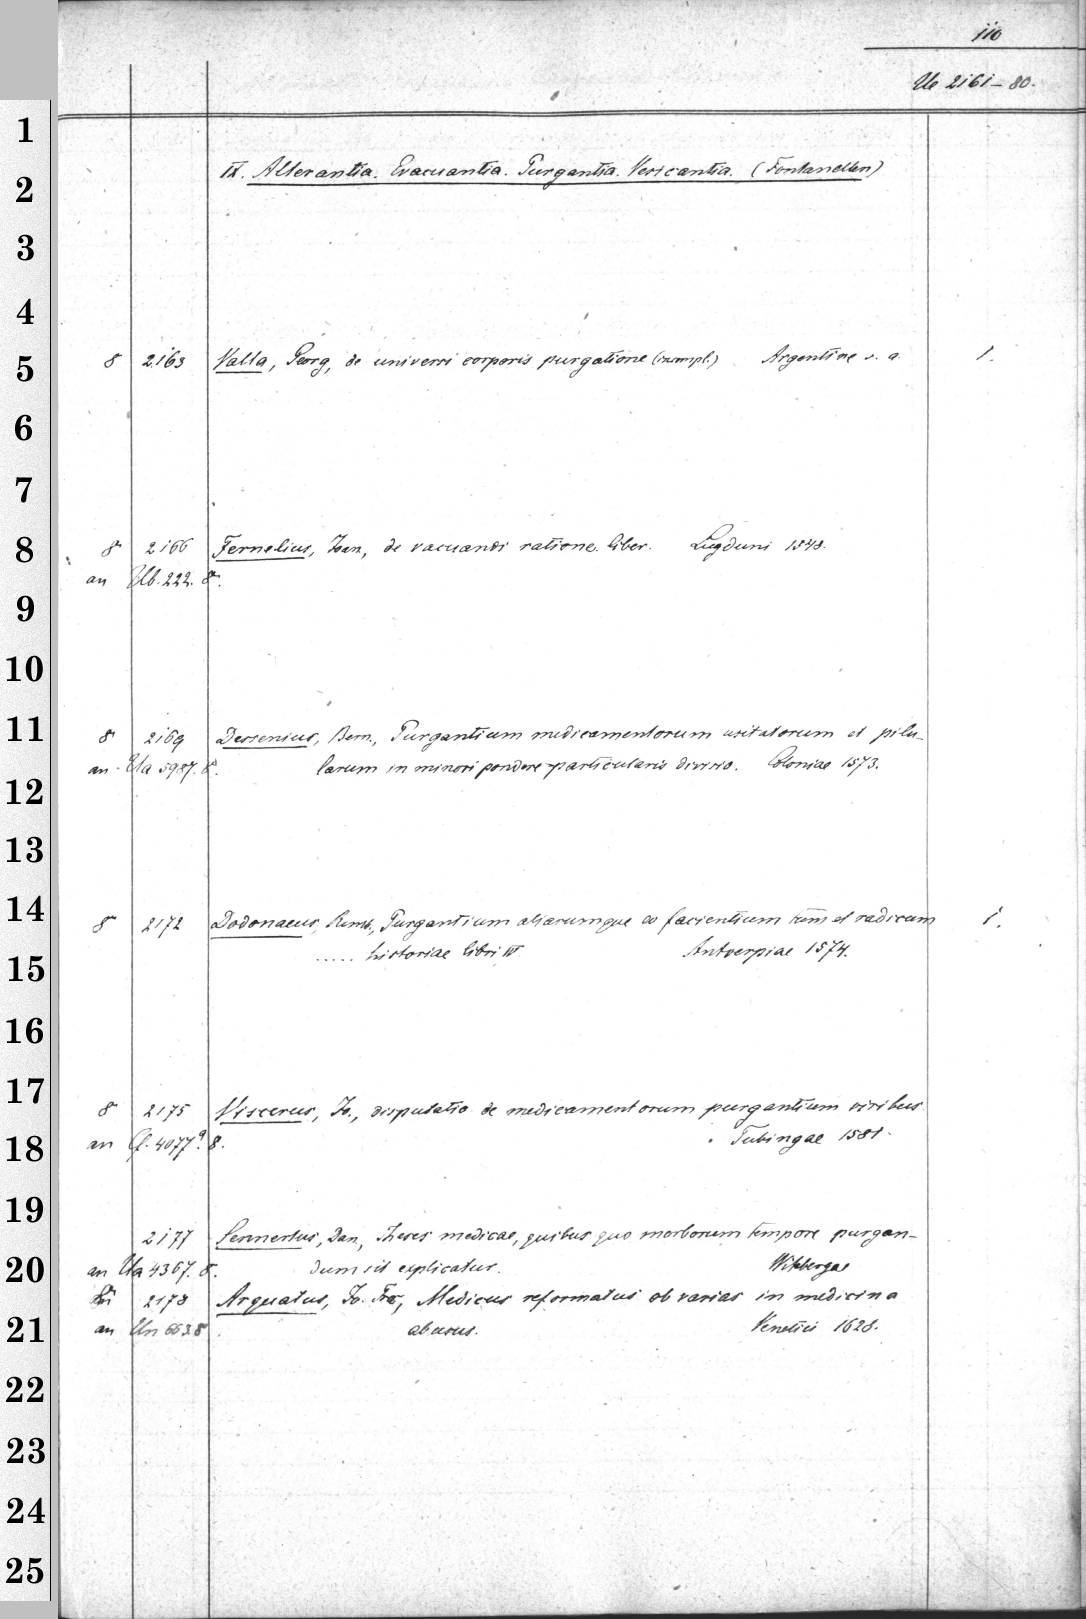 110
Ub 2161-80.
1
2
IX. Alterantia. Evacuantia. Purgantia. Vesicantia. (Fontanellen)
3
4
5
8° 2163 Valla, Georg, de universi corporis purgatione (incompl.) Argentinae s. a. 1.
6
7
8
8° 2166 Fernelius, Joan, de vacuandi ratione. liber. Lugduni 1548.
an Ub. 222. 8°.
9
10
11
8° 2169 Dessenius, Bern., Purgantium medicamentorum usitatorum et pilu-
an Ua 5987. 8°. larum in minori pondere particularis divisio. Coloniae 1573.
12
13
14
8° 2172 Dodonaeus, Remb., Purgantium aliarumque eo facientium tum et radicum 1.
..... historiae libri IV Antverpiae 1574.
15
16
17
8° 2175 Viscerus, Jo., disputatio de medicamentorum purgantium viribus
an Cf. 4077a. 8. Tubingae 1581.
18
19
2177 Sennertus, Dan, Theses medicae, quibus quo morborum tempore purgan-
an Ua 4367. 8°. dum sit explicatur. Witebergae
20
2178 Arquatus, Jo. Frc, Medicus reformatus ob varias in medicina
an Un 663 8° abusus. Venetiis 1628.
21
22
23
24
25